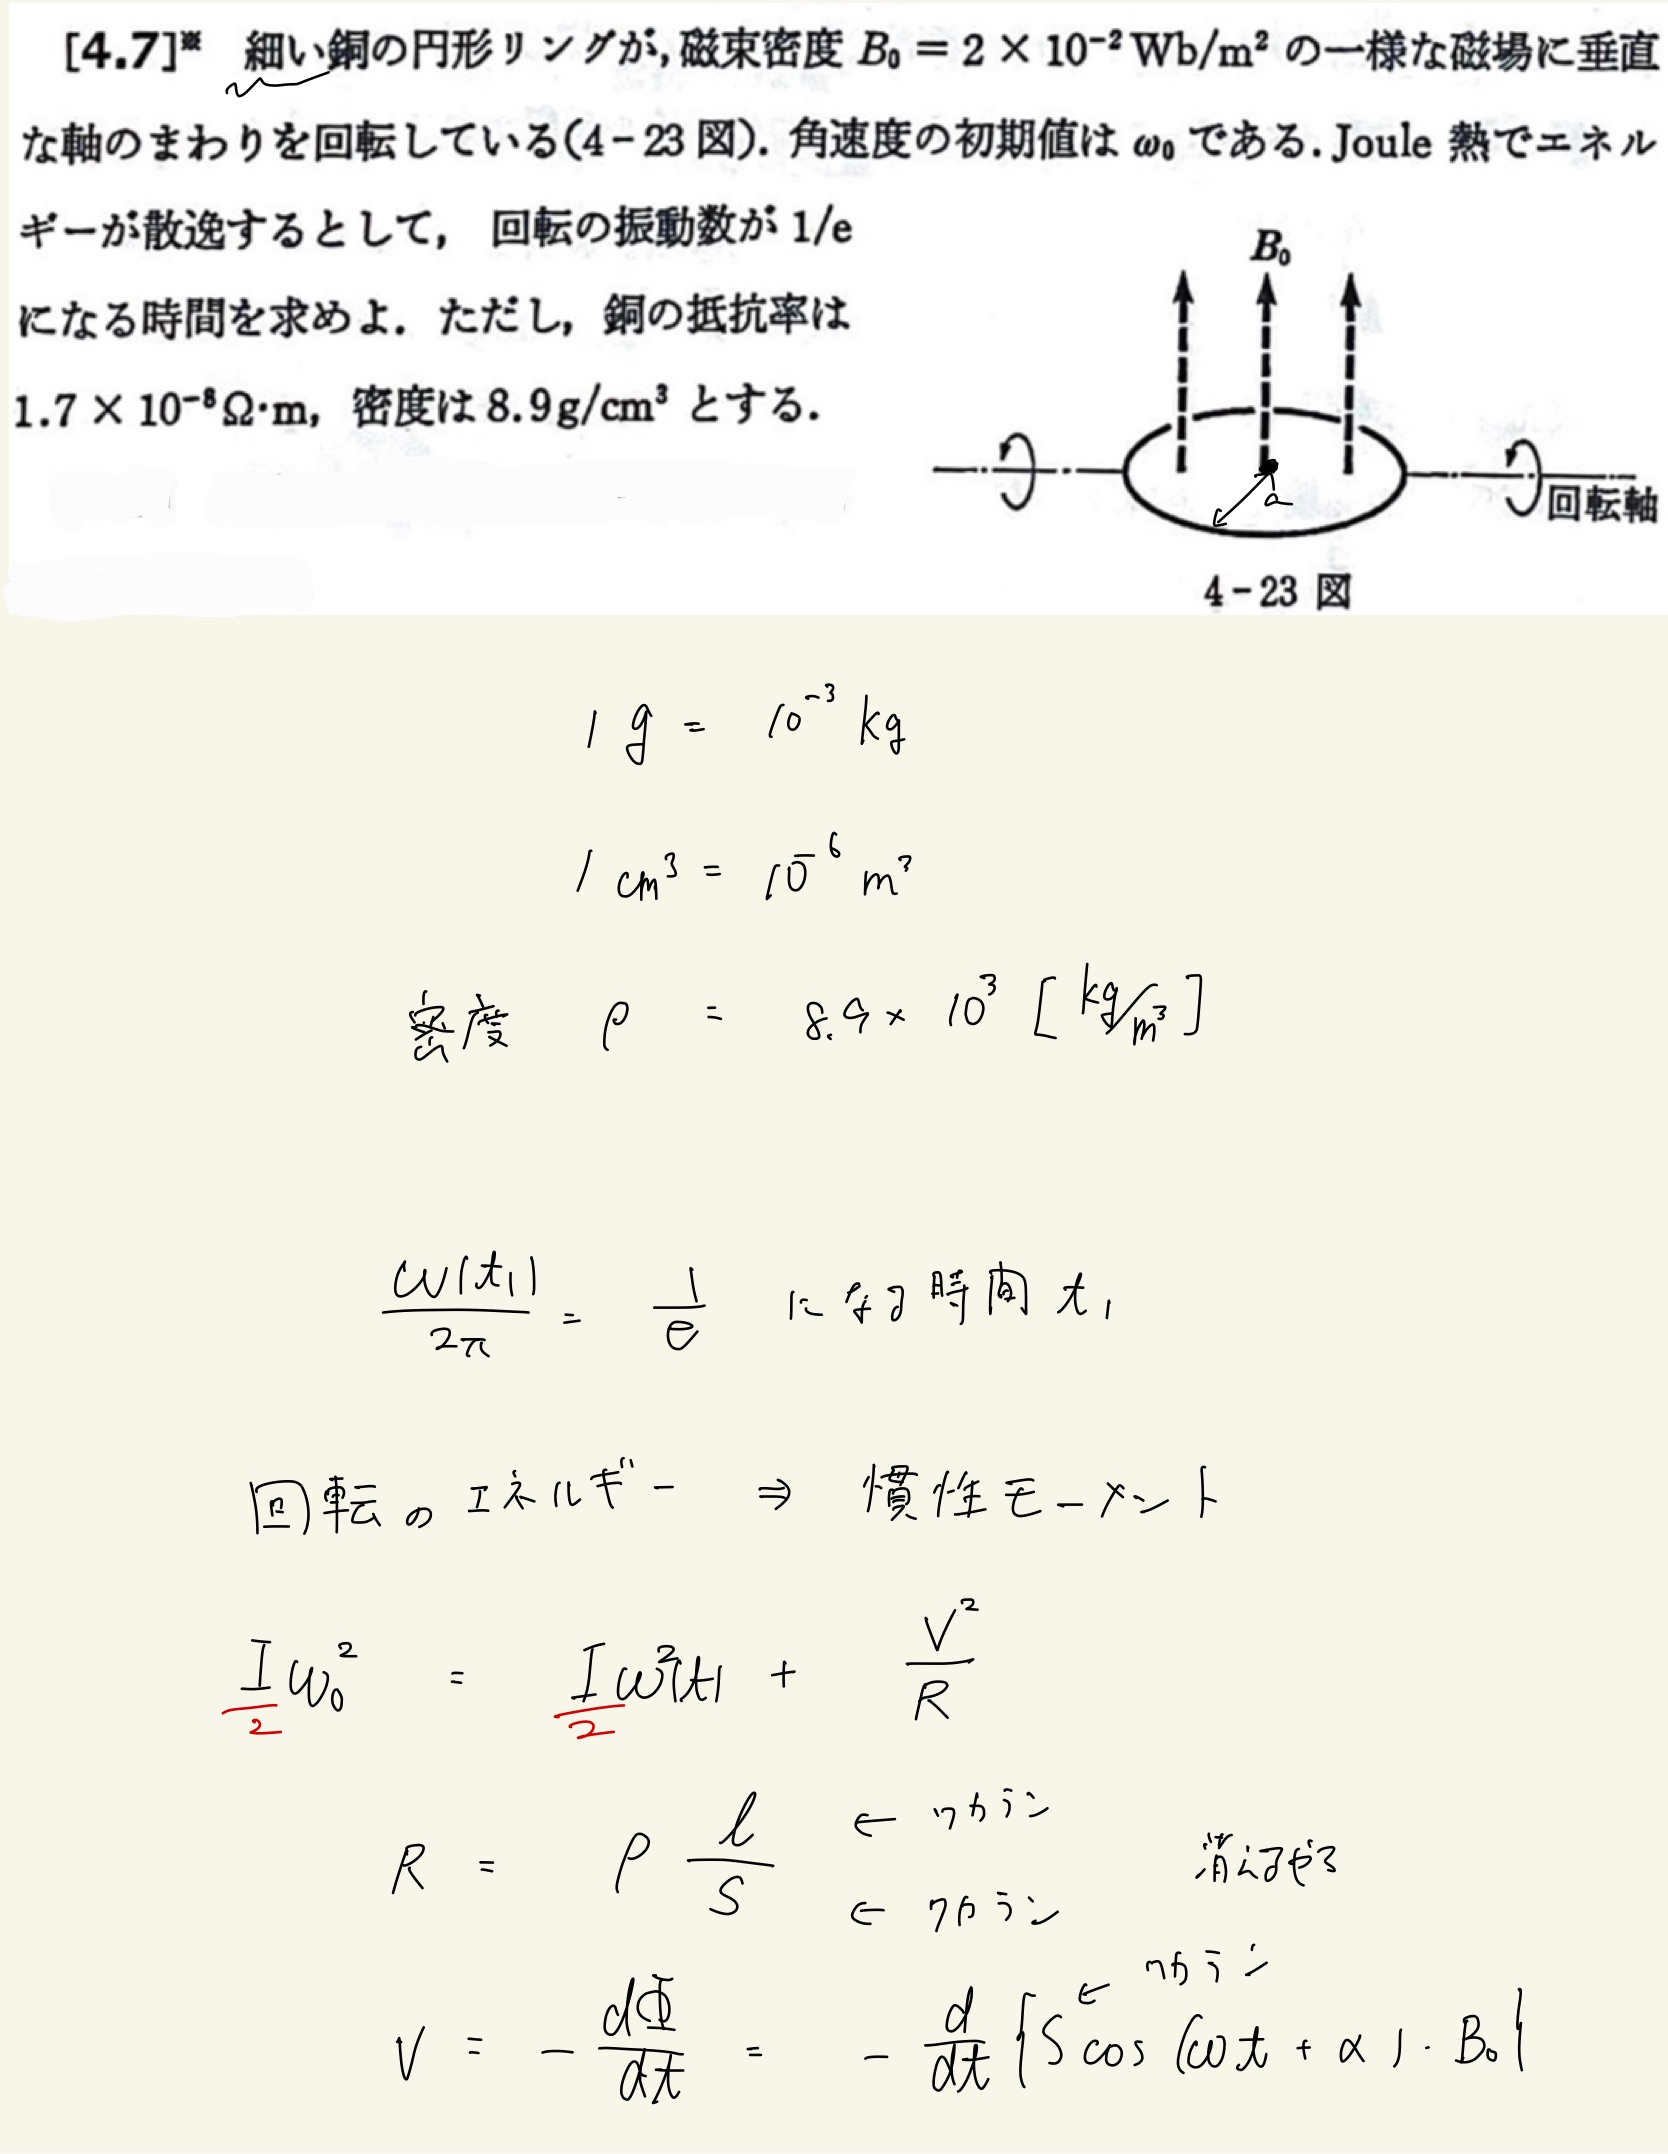 [4.7]※ 細い銅の円形リングが, 磁束密度 B₀ = 2 × 10⁻² Wb/m² の一様な磁場に垂直
な軸のまわりを回転している(4-23 図). 角速度の初期値は ω₀ である. Joule 熱でエネル
ギーが散逸するとして, 回転の振動数が 1/e
になる時間を求めよ. ただし, 銅の抵抗率は
1.7 × 10⁻⁸ Ω·m, 密度は 8.9 g/cm³ とする.
B₀
a
回転軸
4-23 図
1 g = 10⁻³ kg
1 cm³ = 10⁻⁶ m³
密度 ρ = 8.9 × 10³ [kg/m³]
ω(t₁)/2π = 1/e になる時間 t₁
回転のエネルギー ⇒ 慣性モーメント
I/2 ω₀² = I/2 ω²(t) + V²/R
R = ρ l/S ← ワカラン ← ワカラン 消えるやろ
V = - dΦ/dt = - d/dt {S cos (ωt + α) · B₀} ← ワカラン